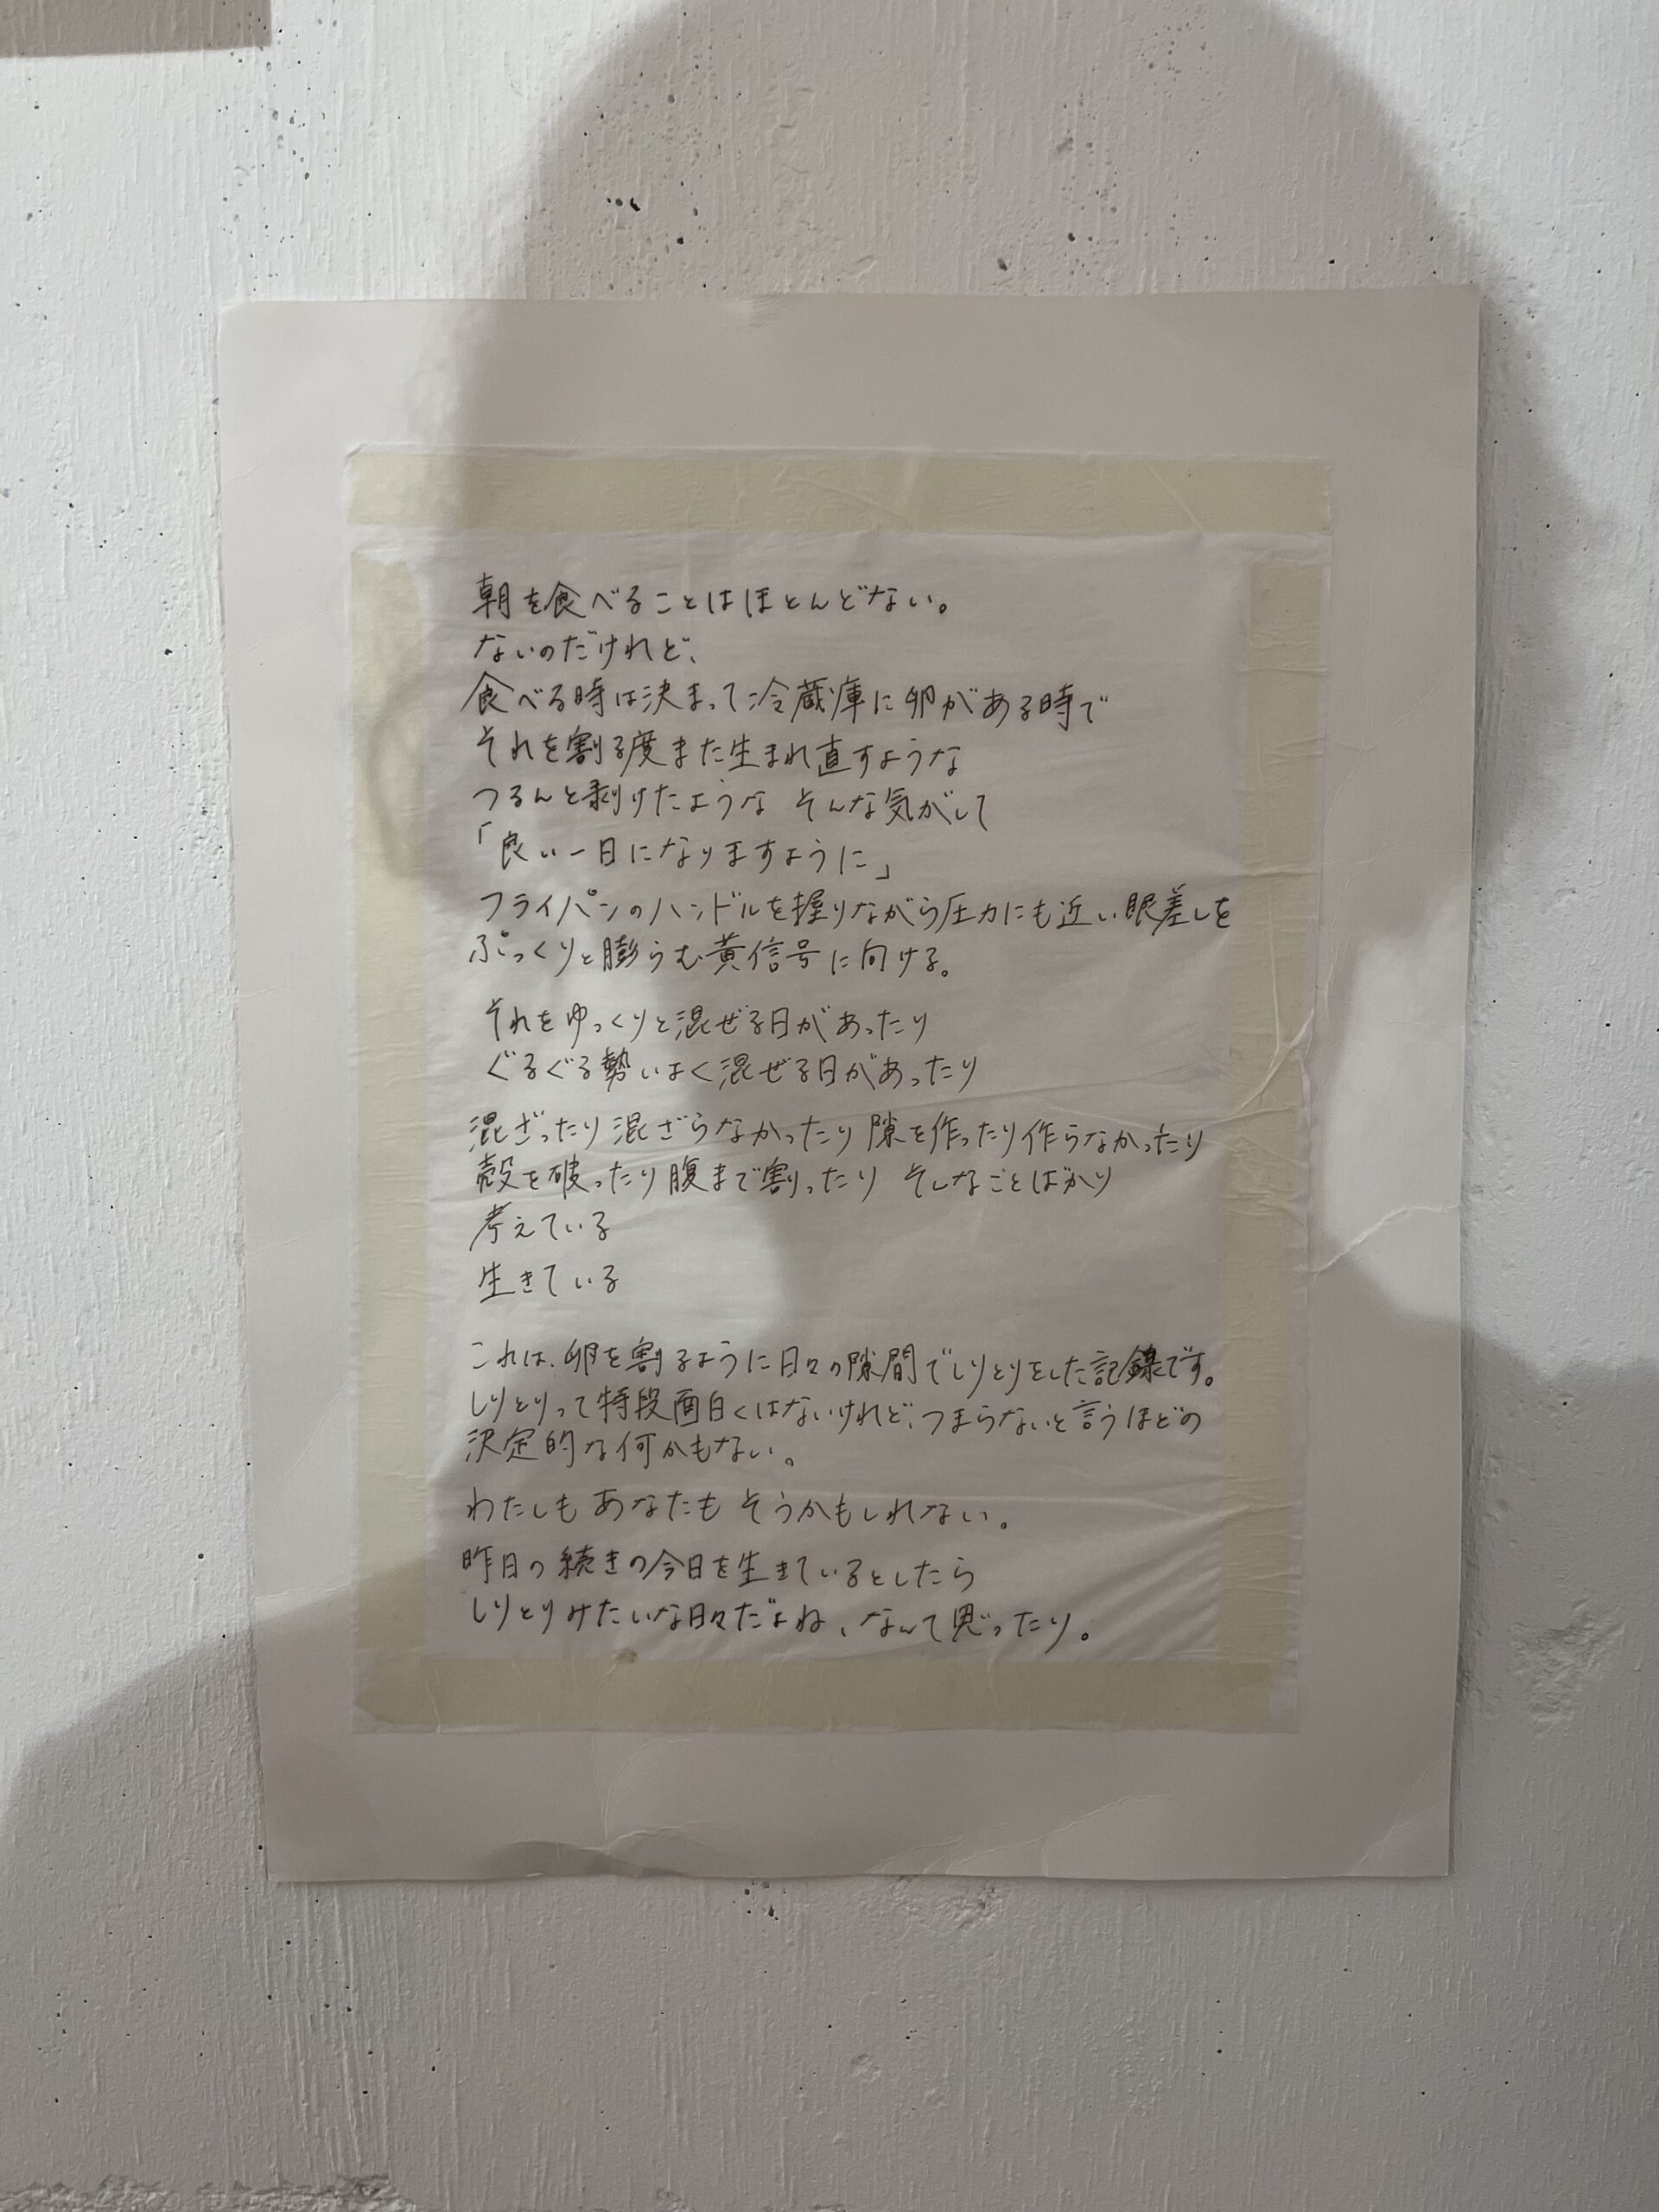 朝を食べることはほとんどない。
ないのだけれど、
食べる時は決まって冷蔵庫に卵がある時で
それを割る度また生まれ直すような
つるんと剥けたような そんな気がして
「良い一日になりますように」
フライパンのハンドルを握りながら圧力にも近い眼差しを
ぷっくりと膨らむ黄信号に向ける。
それをゆっくりと混ぜる日があったり
ぐるぐる勢いよく混ぜる日があったり
混ざったり混ざらなかったり 隙を作ったり作らなかったり
殻を破ったり腹まで割ったり そんなことばかり
考えている
生きている
これは、卵を割るように日々の隙間でしりとりをした記録です。
しりとりって特段面白くはないけれど、つまらないと言うほどの
決定的な何かもない。
わたしも あなたも そうかもしれない。
昨日の続きの今日を生きているとしたら
しりとりみたいな日々だよね、なんて思ったり。